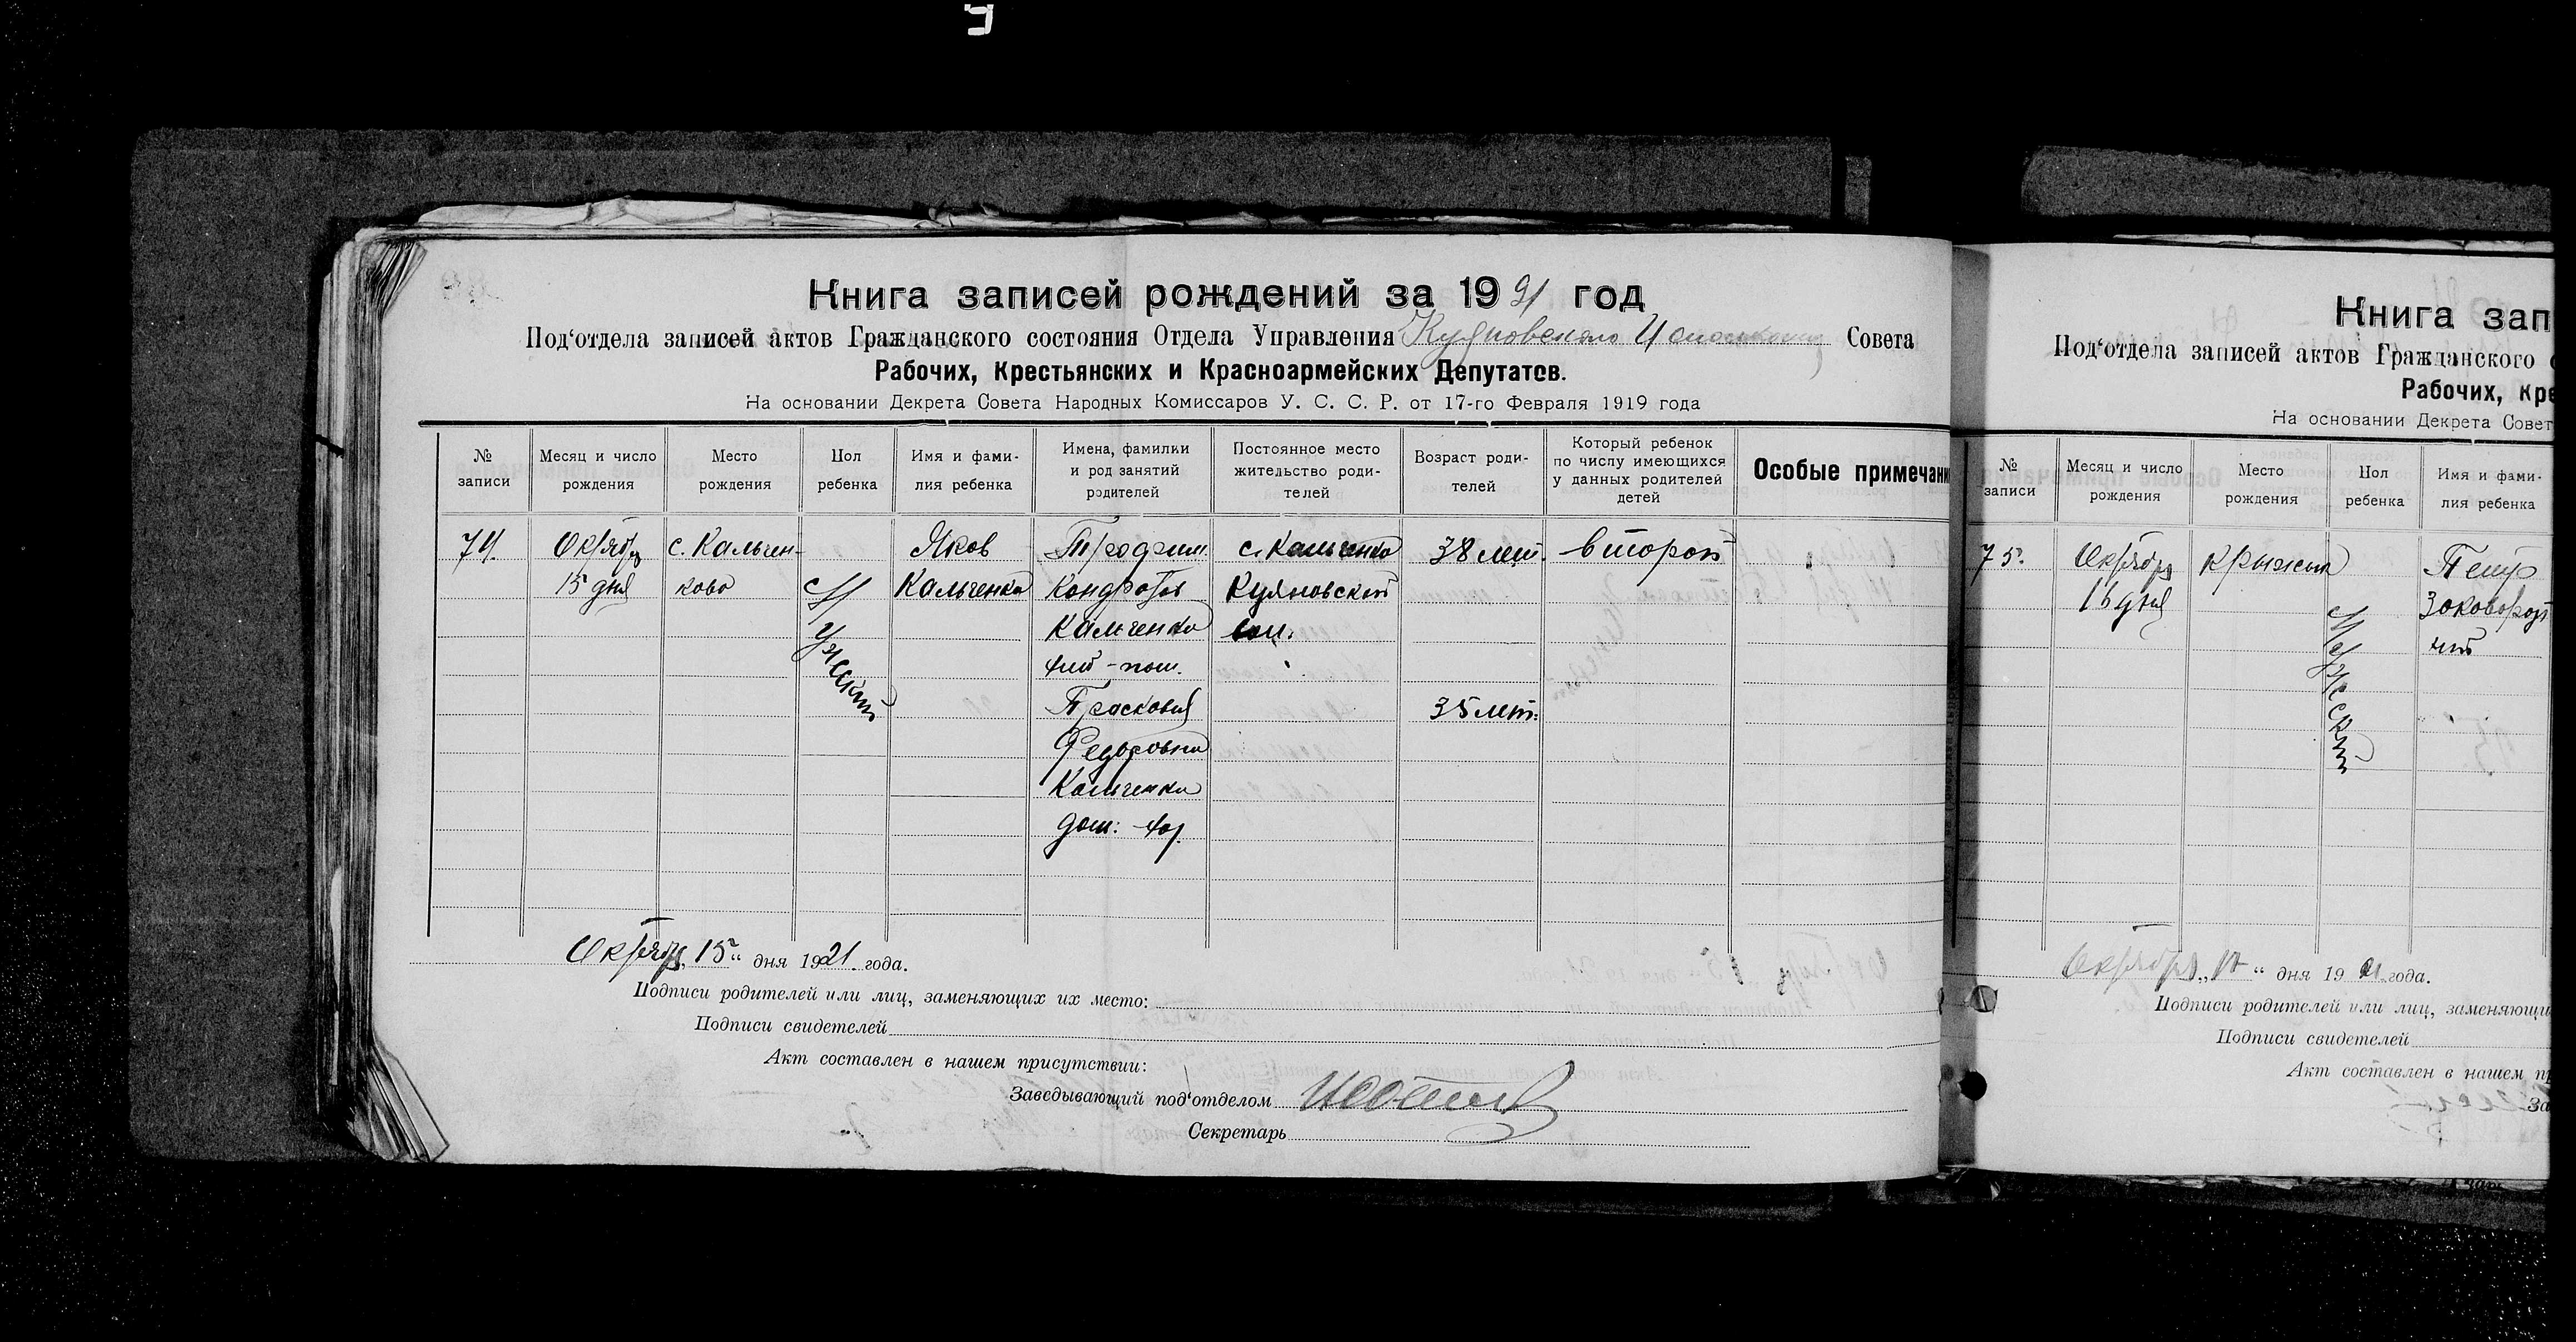 Книга записей рождений за 1921 год
Под‘отдела записей актов Гражданского состояния Отдела Управления Куяновского Совета
Рабочих, Крестьянских и Красноармейских Депутатов.
На основании Декрета Совета Народных Комиссаров У. С. С. Р. от 17-го Февраля 1919 года
№ записи
Месяц и число рождения
Место рождения
Пол ребенка
Имя и фами-
лия ребенка
Имена, фамилии
и род занятий
родителей
Постоянное место
жительство роди-
телей
Возраст роди-
телей
Который ребенок
по числу имеющихся
у данных родителей
детей
Особые примечани
74.
Октября
15 дня
с. Кальчен-
ково
Мужский
Яков
Кальченко
Трофим
Кондратов
Кальченко
хлеб-паш.
Прасковия
Федоровна
Кальченко
дом:
с. Кальченко
Куяновской
вол.
38 лет.
35 лет.
второй
Октября 15 “ дня 1921 года.
Подписи родителей или лиц, заменяющих их место:
Подписи свидетелей
Акт составлен в нашем присутствии:
Заведывающий под‘отделом
Секретарь
Книга зап
Под‘отдела записей актов Гражданского с
Рабочих, Кре
На основании Декрета Совет
№
записи
Месяц и число
рождения
Место
рождения
Пол
ребенка
Имя и фами-
лия ребенка
75.
Октября
16 дня
Мужский
Петр
Октября „17 “ дня 1921 года.
Подписи родителей или лиц, заменяющи
Подписи свидетелей
Акт составлен в нашем п
За